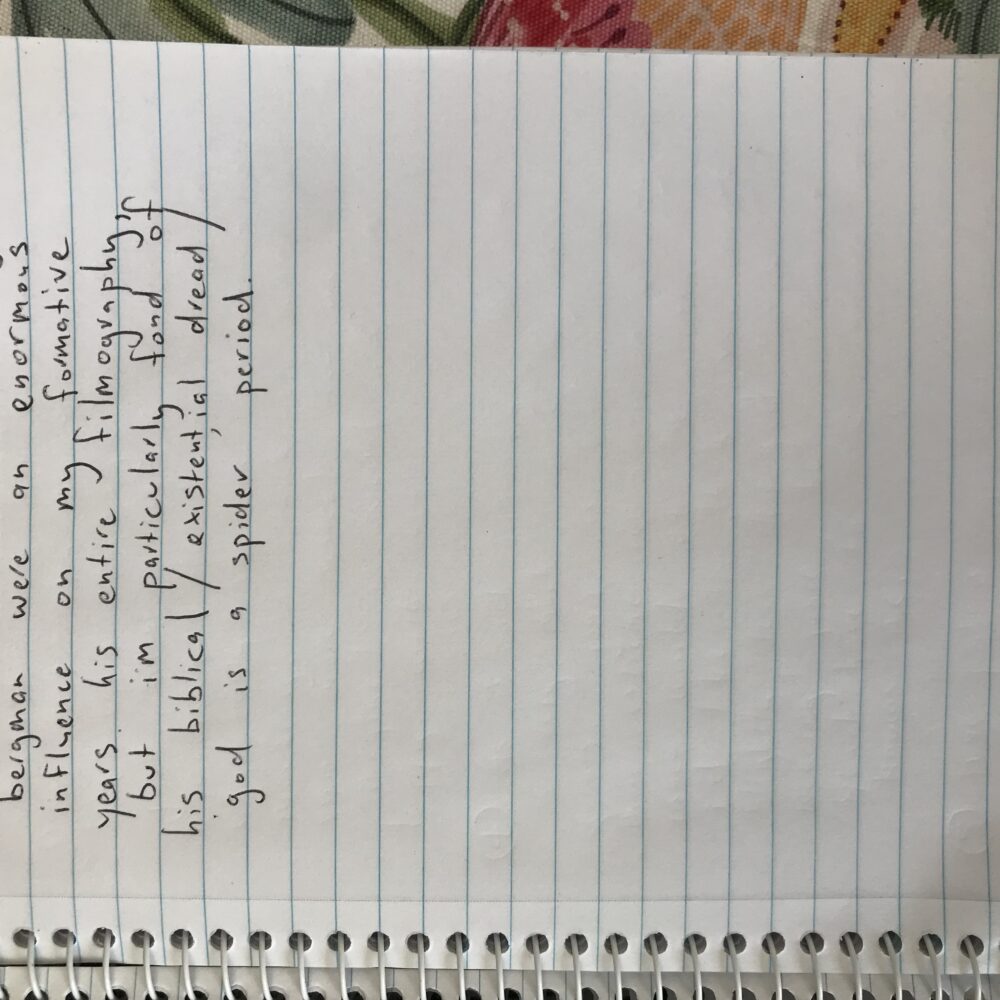 bergman were an enormous
influence on my formative
years. his entire filmography,
but i'm particularly fond of
his biblical / existential dread /
god is a spider period.